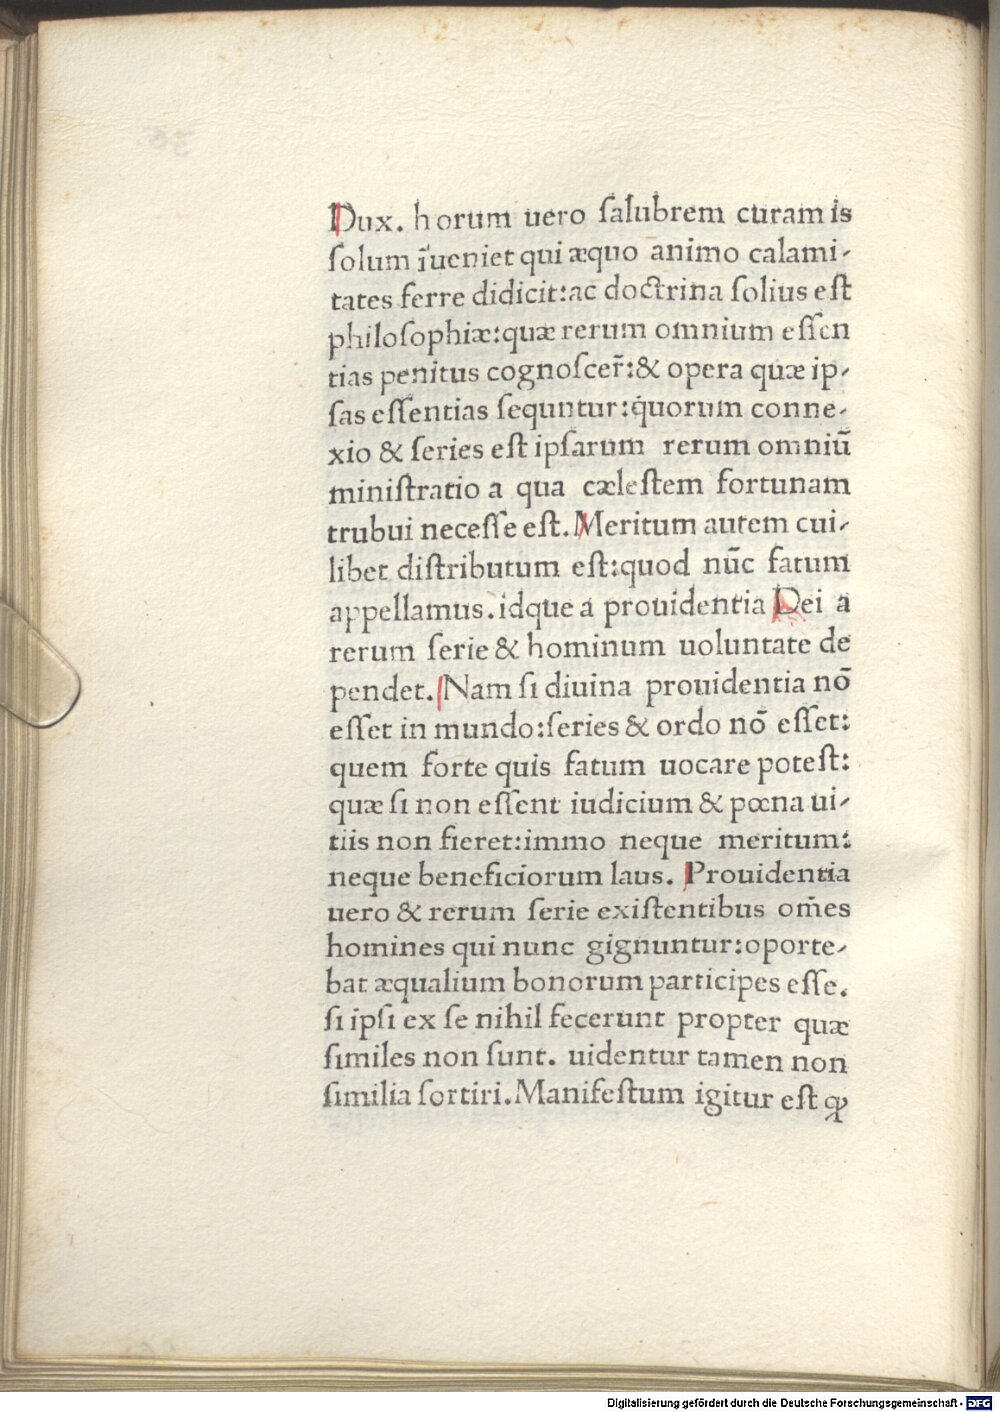 Dux. horum uero ſalubrem curam is
ſolum ĩueniet qui æquo animo calami-
tates ferre didicit:ac doctrina ſolius eſt
philoſophiæ:quæ rerum omnium eſſen
tias penitus cognoſcer̃:& opera quæ ip-
ſas eſſentias ſequntur:quorum conne-
xio & ſeries eſt ipſarum rerum omniũ
miniſtratio a qua cæleſtem fortunam
trubui neceſſe eſt. Meritum autem cui-
libet diſtributum eſt:quod nũc fatum
appellamus. idque a prouidentia Dei a
rerum ſerie & hominum uoluntate de
pendet. Nam ſi diuina prouidentia nõ
eſſet in mundo:ſeries & ordo nõ eſſet:
quem forte quis fatum uocare poteſt:
quæ ſi non eſſent iudicium & pœna ui-
tiis non fieret:immo neque meritum:
neque beneficiorum laus. Prouidentia
uero & rerum ſerie exiſtentibus om̃es
homines qui nunc gignuntur:oporte-
bat æqualium bonorum participes eſſe.
ſi ipſi ex ſe nihil fecerunt propter quæ
ſimiles non ſunt. uidentur tamen non
ſimilia ſortiri. Manifeſtum igitur eſt ꝙ
Digitalisierung gefördert durch die Deutsche Forschungsgemeinschaft - DFG